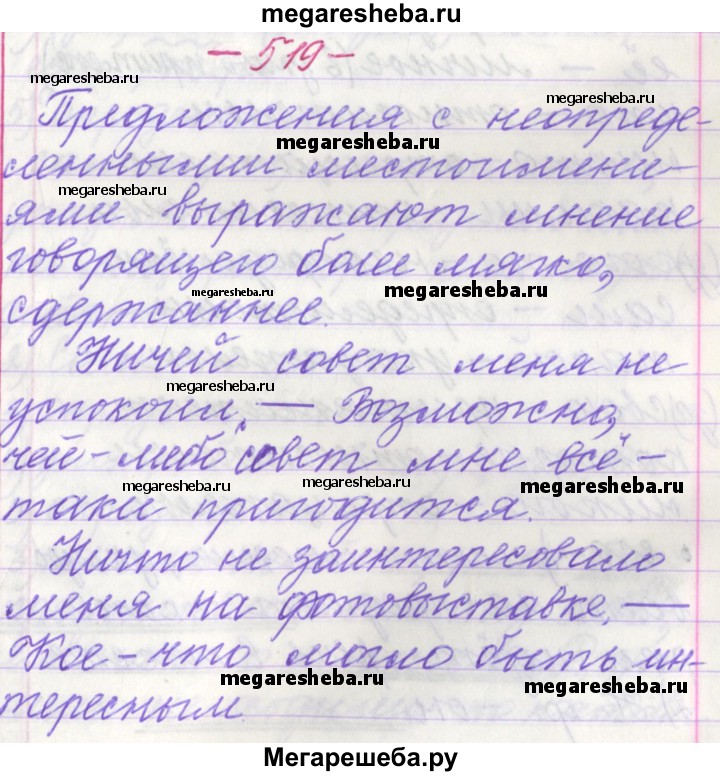 megaresheba.ru
- 519 -
megaresheba.ru
megaresheba.ru
Предложения с неопреде-
megaresheba.ru
ленными местоимени-
megaresheba.ru
ями выражают мнение
говорящего более мягко,
megaresheba.ru
megaresheba.ru
сдержаннее.
Ничей совет меня не
megaresheba.ru
успокоил. — Возможно,
чей-либо совет мне всё-
megaresheba.ru
megaresheba.ru
megaresheba.ru
таки пригодится.
Ничто не заинтересовало
меня на фотовыставке. —
Кое-что могло быть ин-
megaresheba.ru
megaresheba.ru
тересным.
Мегарешеба.ру